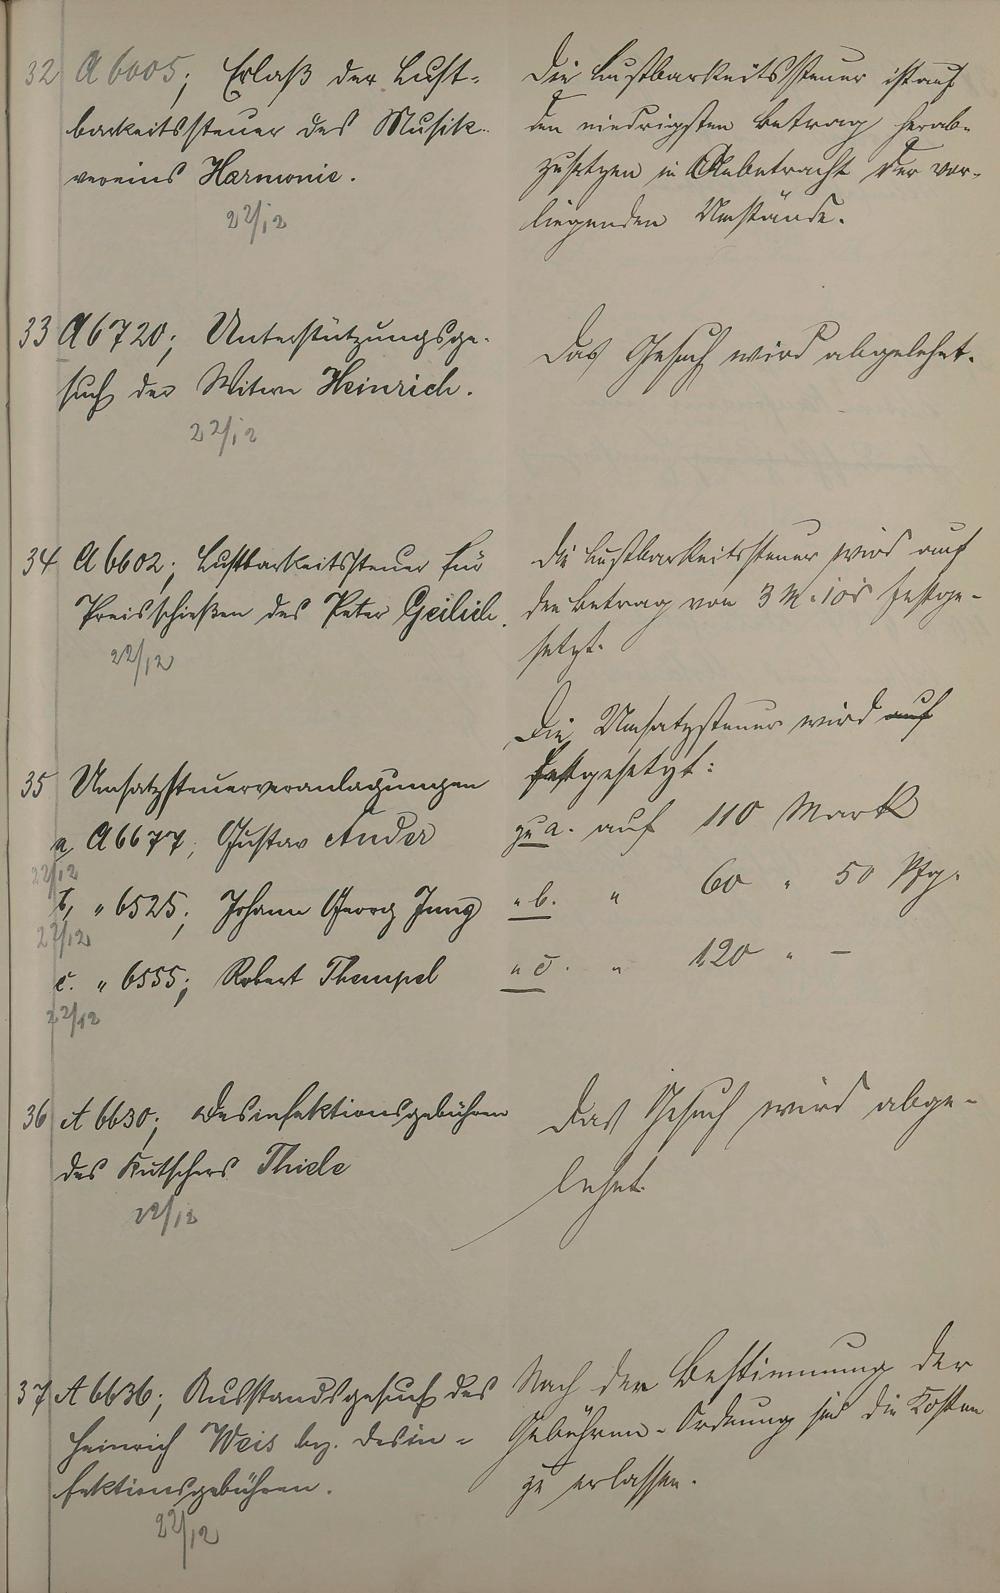 32 A 6005; Erlaß der Lust-
barkeitssteuer des Musik-
vereins Harmonie.
22/12
Die Lustbarkeitssteuer ist auf
den niedrigsten Betrag herab-
zusetzen in Anbetracht der vor-
liegenden Umstände.
33 A 6720; Unterstützungsge-
such der Witwe Heinrich.
22/12
Das Gesuch wird abgelehnt.
34 A 6602; Lustbarkeitssteuer für
Preisschießen des Peter Geilich.
22/12
Die Lustbarkeitssteuer wird auf
den Betrag von 3 M festge-
setzt.
35 Umsatzsteuerveranlagungen
Die Umsatzsteuer wird auf
festgesetzt:
a, A 6677; Gustav Ander
22/12
zu a. auf 110 Mark
b, " 6525; Johann Georg Jung
22/12
" b. " 60 " 50 Pfg.
c. " 6555; Robert Thempel
22/12
" c. " 120 " –
36 A 6630; Desinfektionsgebühren
des Kutschers Thiele
22/12
Das Gesuch wird abge-
lehnt.
37 A 6636; Ausstandsgesuch des
Heinrich Weis bz. Desin-
fektionsgebühren.
22/12
Nach der Bestimmung der
Gebühren-Ordnung sind die Kosten
zu erlassen.